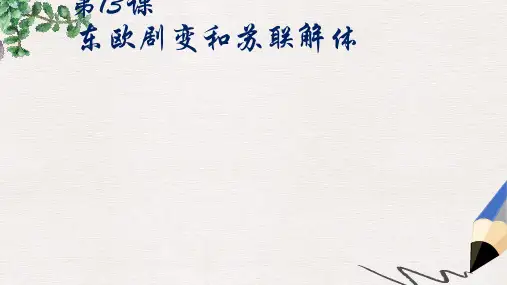 第13课
东欧剧变和苏联解体